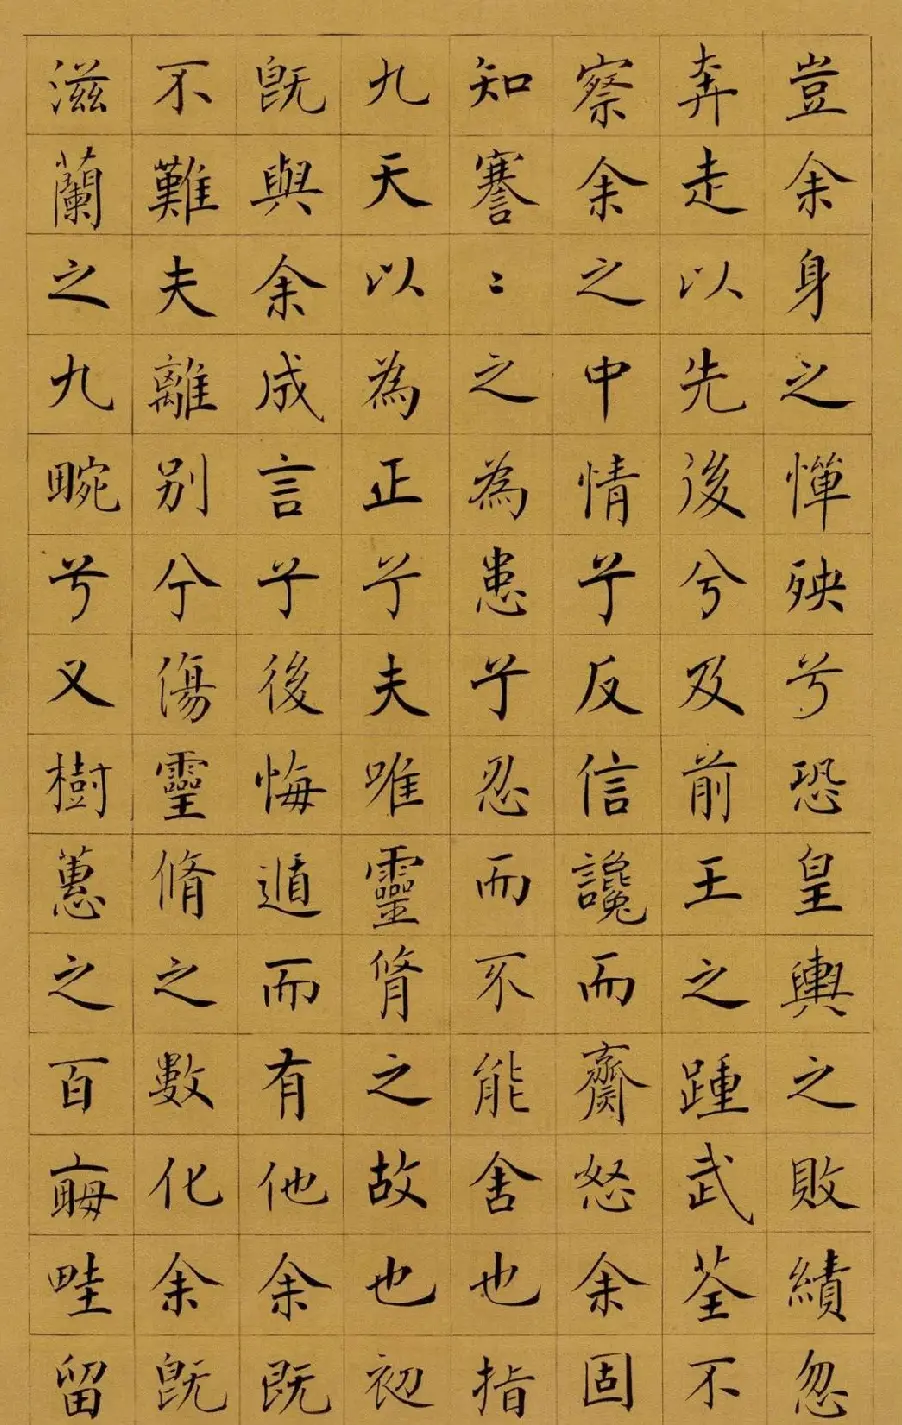 豈余身之憚殃兮恐皇輿之敗績忽
奔走以先後兮及前王之踵武荃不
察余之中情兮反信讒而齋怒余固
知謇〻之為患兮忍而不能舍也指
九天以為正兮夫唯靈脩之故也初
既與余成言兮後悔遁而有他余既
不難夫離別兮傷靈脩之數化余既
滋蘭之九畹兮又樹蕙之百畮畦留